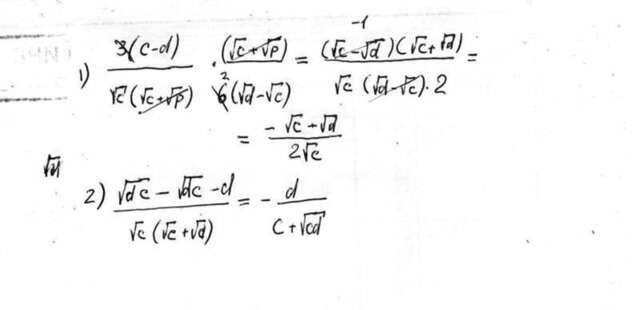 1) 3(c-d) / √c(√c+√p) · (√c+√p) / 6(√d-√c) 2 = -1 (√c-√d)(√c+√d) / √c(√d-√c)·2 =
= -√c+√d / 2√c
√d
2) √dc - √dc -d / √c(√c+√d) = - d / c+√cd